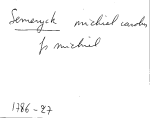 Semeryck michiel carolus
fs michiel
1786-27